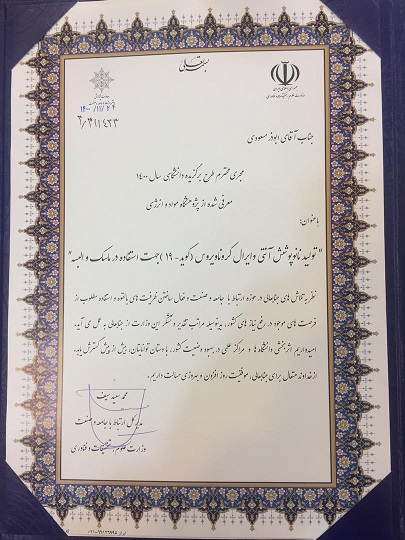 بسمه تعالی
جمهوری اسلامی ایران
وزارت علوم، تحقیقات و فناوری
۱۴۰۰/۱۱/۲۴
۲/۳۱۱۴۲۳
جناب آقای ابوذر مسعودی
مجری محترم طرح برگزیده دانشگاهی سال ۱۴۰۰
معرفی شده از پژوهشگاه مواد و انرژی
با عنوان:
"تولید نانوپوشش آنتی وایرال کروناویروس (کوید-۱۹) جهت استفاده در ماسک و البسه"
نظر به تلاش های جنابعالی در حوزه ارتباط با جامعه و صنعت و فعال ساختن ظرفیت های بالقوه و استفاده مطلوب از
فرصت های موجود در رفع نیاز های کشور، بدینوسیله مراتب تقدیر و تشکر این وزارت از جنابعالی به عمل می آید.
امید داریم اثربخشی دانشگاه ها و مراکز علمی در بهبود وضعیت کشور، با دستان توانایتان، بیش از پیش گسترش یابد.
از خداوند متعال برای جنابعالی، موفقیت روز افزون و بهروزی مسالت داریم.
محمد سعید سیف
مدیر کل ارتباط با جامعه و صنعت
وزارت علوم، تحقیقات و فناوری